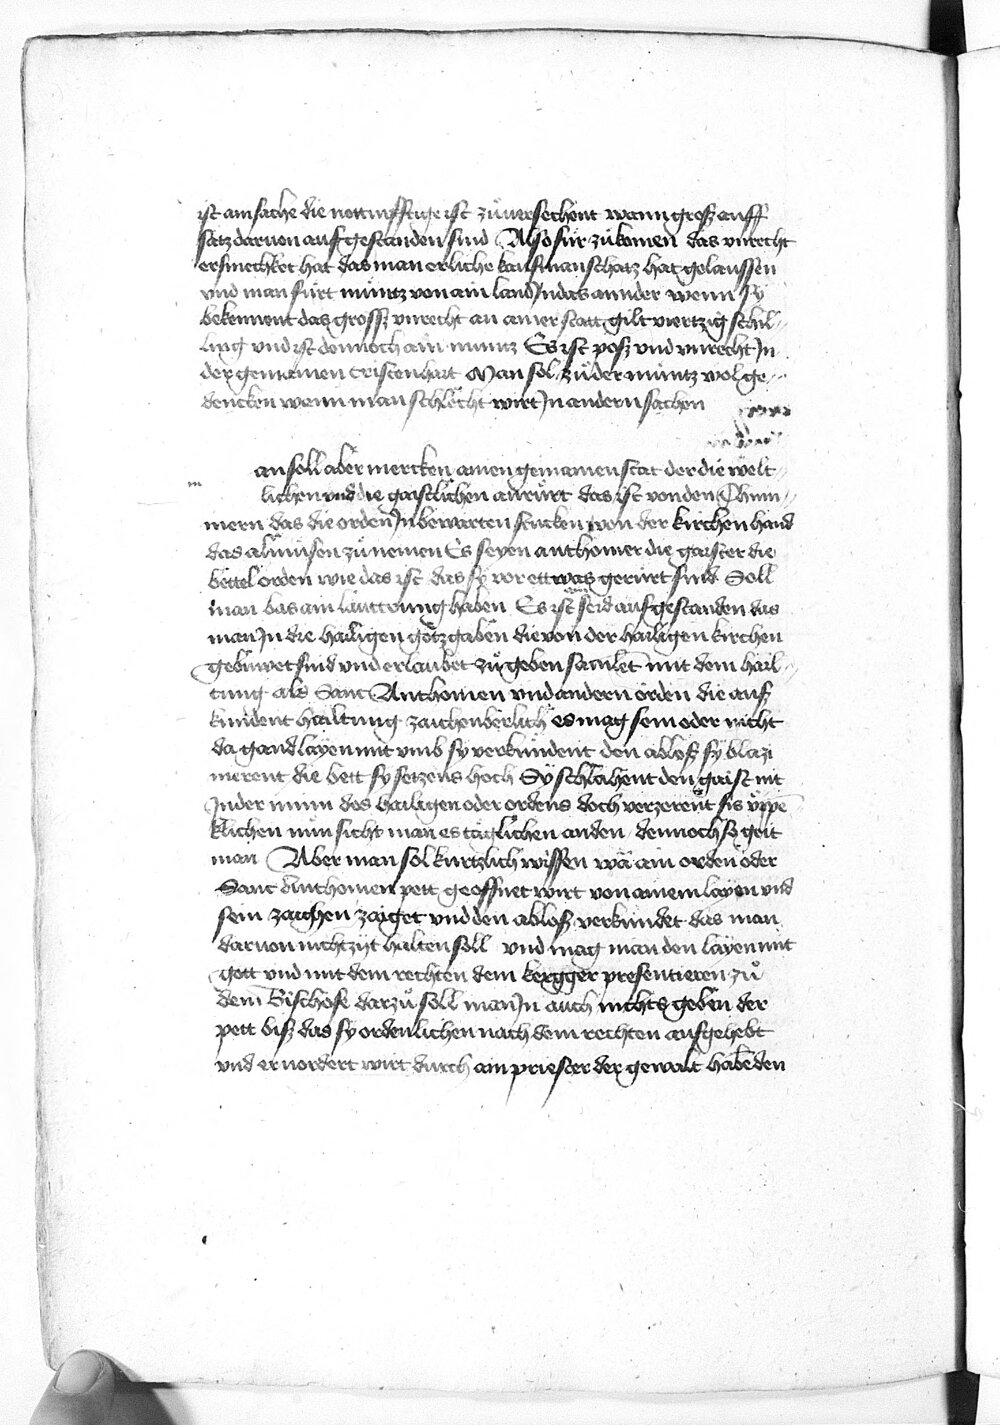 ist ain sache die notturfftig ist zuͦ versechent wann groß auff
sätz daruon auf gestanden sind Also für zu komen das vnrecht
das man erliche kaufmanschatz hat gelaussen
vnd man fürt müntz von ain land Jn das annder wenn sy
bekennent das gross vnrecht an ainer statt gilt viertzig schil„
ling vnd ist dennoch ain müntz Es ist poß vnd vnrecht Jn
der gemainen cristenhait Man sol zuͦ der müntz wol ge„
dencken wenn man schlecht wirt Jn andern sachen
an soll aber mercken ainen gemainen stat der die welt„
lichen vnd die gaistlichen anrürt das ist von den
mern das die orden Jn bewarten stucken von der kirchen hand
das almuͦsen zuͦ nemen Es seyen anthonier die gaister die
bettel orden wie das ist das sy vor ettwas gerürt sind Soll
man bas ain lauttrung haben Es ist seid auf gestanden das
man Jn die hailigen gotzgaben die von der hailigen kirchen
gebuwet sind vnd erlaubet zuͦ geben samlet mit dem hail„
tung als Sant Anthonien vnd andern orden die auß
kündent hailtung zaichenberlich es mag sein oder nicht
da gand layen mit vmb sy verkündent den abloß sy blazi
merent die bett sy setzens hoch Sy schlahent den gaist nit
Jn der minn des hailigen oder ordens doch verzerent sis üppe
klichen nun sicht man es täglichen an den dennoch so geit
man Aber man sol kurtzlich wissen wa ain orden oder
Sanc Anthonien pett geoffnet wirt von ainem layen vnd
sein zaichen zaiget vnd den abloß verkündet das man
daruon nichtzyt halten soll vnd mag man den layen mit
gott vnd mit dem rechten dem kergger presentieren zuͦ
dem Bischofe darzuͦ soll man Jn auch nichts geben der
pett biß das sy ordenlichen nach dem rechten aufgehebt
vnd eruordert wirt durch ain priester der gewalt habe den